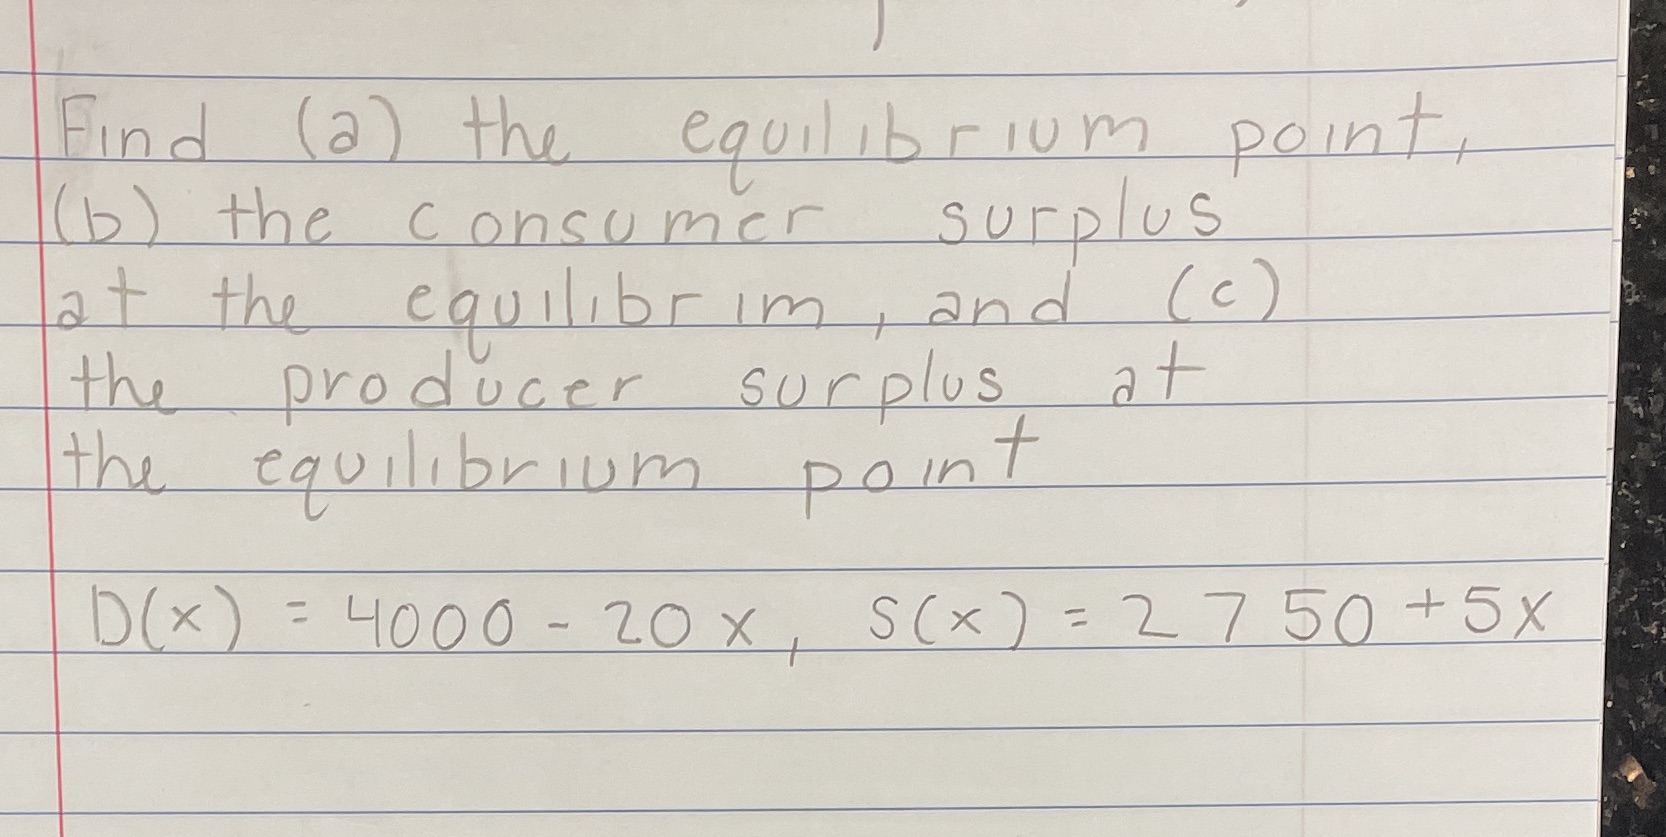 Find (a) the equilibrium point,
(b) the consumer surplus
at the equilibrim, and (c)
the producer surplus at
the equilibrium point
D(x) = 4000 - 20x, S(x) = 2750 + 5x